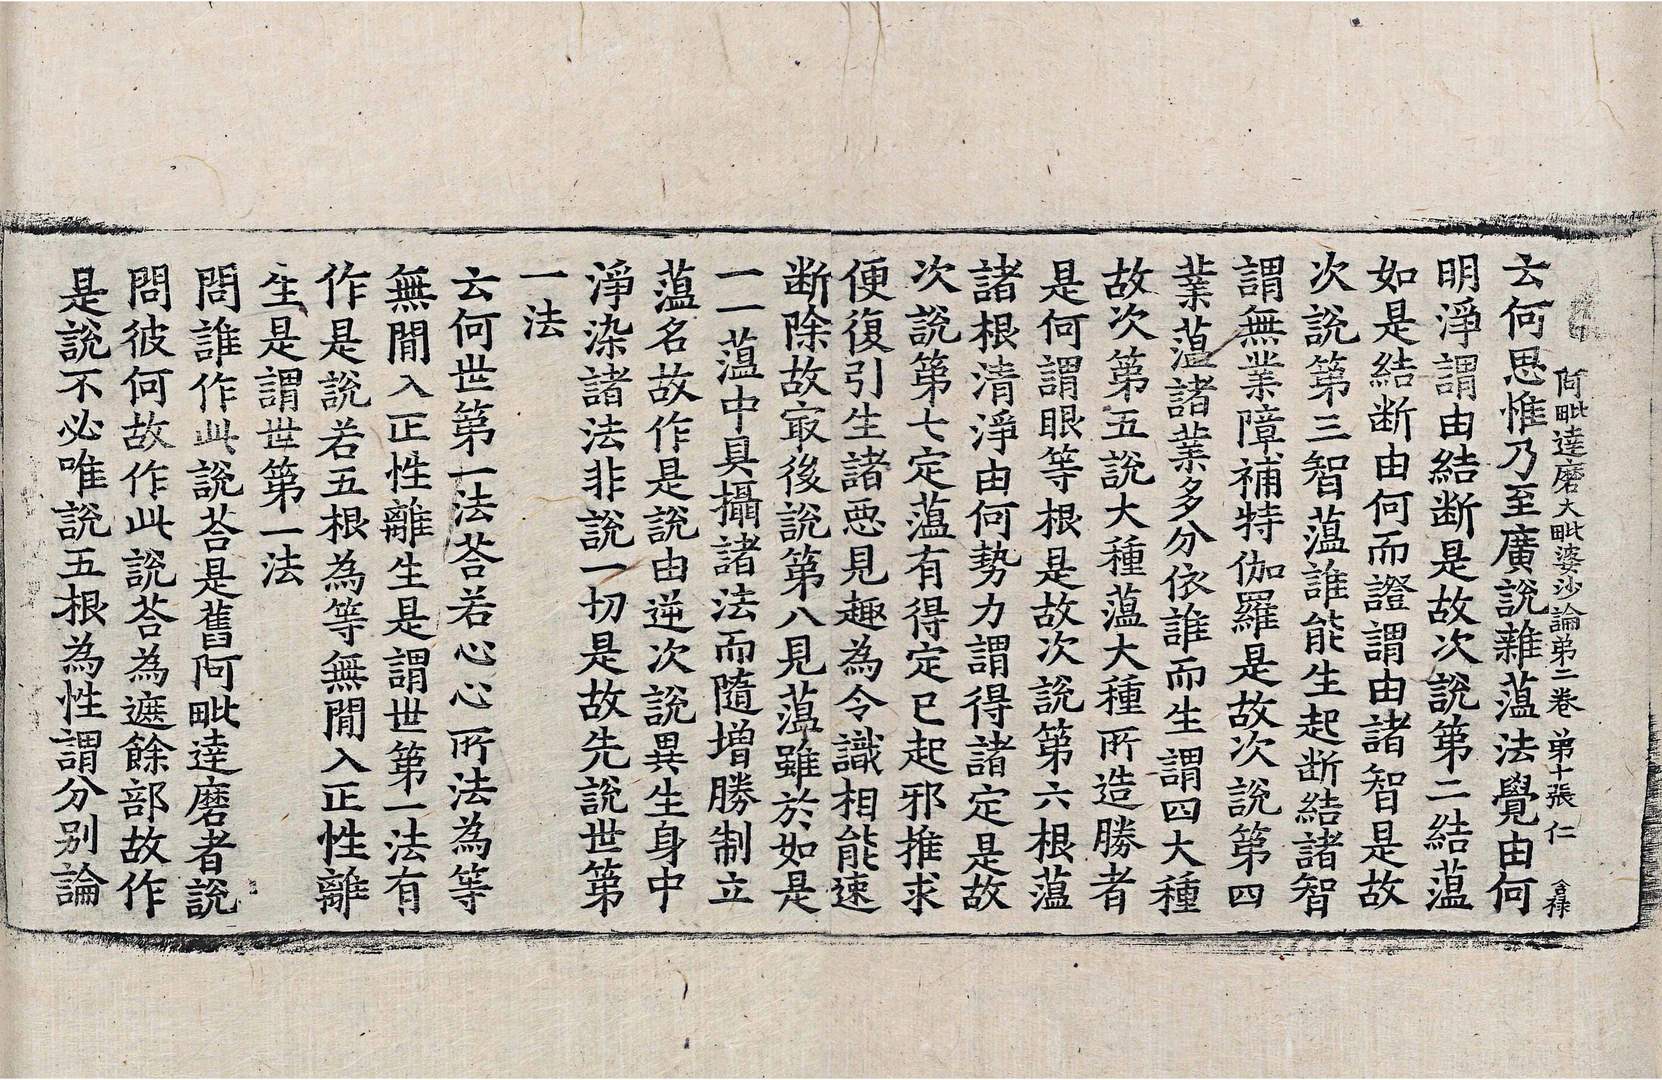 阿毗達磨大毗婆沙論第二卷 第十張 仁 合祿
云何思惟乃至廣說雜薀法覺由何
明淨謂由結斷是故次說第二結薀
如是結斷由何而證謂由諸智是故
次說第三智薀誰能生起斷結諸智
謂無業障補特伽羅是故次說第四
業薀諸業多分依誰而生謂四大種
故次第五說大種薀大種所造勝者
是何謂眼等根是故次說第六根薀
諸根清淨由何勢力謂得諸定是故
次說第七定薀有得定已起邪推求
便復引生諸惡見趣為令識相能速
斷除故㝡後說第八見薀雖於如是
一一薀中具攝諸法而隨增勝制立
薀名故作是說由逆次說異生身中
淨染諸法非說一切是故先說世第
一法
云何世第一法荅若心心所法為等
無閒入正性離生是謂世第一法有
作是說若五根為等無閒入正性離
生是謂世第一法
問誰作此說荅是舊阿毗達磨者說
問彼何故作此說荅為遮餘部故作
是說不必唯說五根為性謂分別論